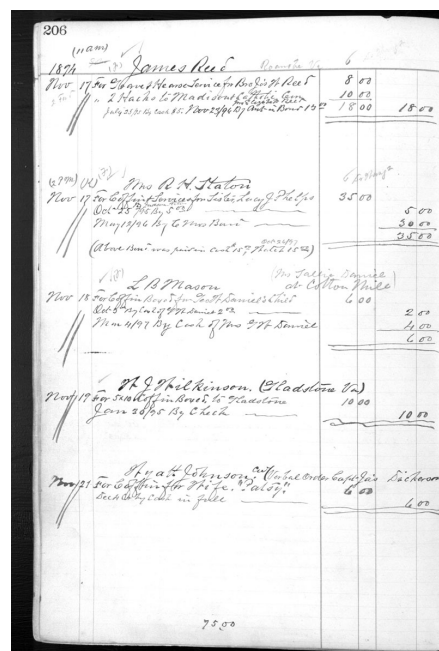 206
(11 am)
1894 James Reed Roanoke Va 6
Nov 17 For Grave & Hearse Service for Bro Jas W Reed 8 00
" 2 Hacks to Madison St Catholic Cem 10 00
By Cash $5. Nov 23/96 By 18 00 18 00
(2 pm) Mrs R. H. Staton 6
Nov 17 For Coffin & Services for Sister Lucy J Phelps 35 00
Oct 25 /95 By 5 00
May 12/96 By 6 Mos 30 00
35 00
(Above was paid in Cash 15 00)
L B Mason (Mrs Sallie Daniel at Cotton Mill)
Nov 18 For Coffin Boxed for Geo W Daniel's Child 6 00
Oct 3 By Cash of G W Daniel 2 00
Mar 4/97 By Cash of Mrs G W Daniel 4 00
6 00
W J Wilkinson. (Gladstone Va)
Nov 19 For 5x10 Coffin Boxed to Gladstone 10 00
Jan 30/95 By Check 10 00
Wyatt Johnson, Col (Verbal Order Capt Jas Dickerson
Nov 21 For Coffin for Wife "Patsy" 6 00
By Cash in full 6 00
75.00